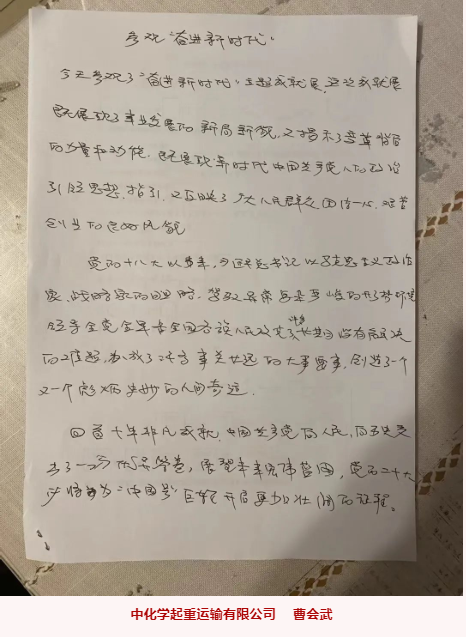 参观“奋进新时代”
今天参观了“奋进新时代”主题成就展,这次成就展
既展现了事业发展的新局新貌,又揭示了变革背后
的力量和功能,既展现新时代中国共产党人的政治
引领思想指引,又反映了广大人民群众团结一心,艰苦
创业的良好风貌
党的十八大以来,习近平总书记以马克思主义政治
家、战略家的
领导全党全军全国各族人民 长期 没有解决
的难题,办成了许多事关长远的大事要事,创造了一个
又一个彪炳史册的人间奇迹
回首十年非凡成就,中国共产党为人民,向历史交
出了一份优异答卷,展望未来宏伟蓝图,党的二十大
必将为“中国号”巨轮开启更加壮阔的征程。
中化学起重运输有限公司 曹会武